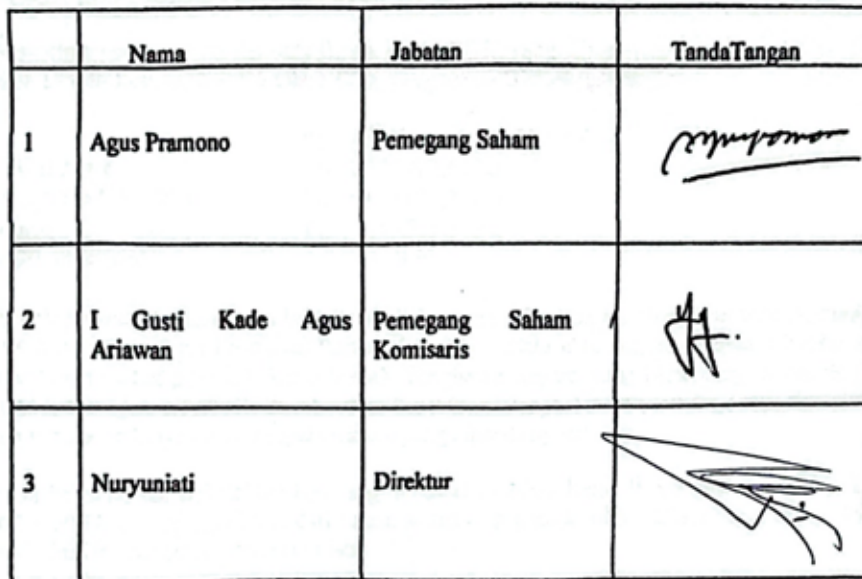 Nama Jabatan TandaTangan
1 Agus Pramono Pemegang Saham
2 I Gusti Kade Agus Pemegang Saham /
Ariawan Komisaris
3 Nuryuniati Direktur